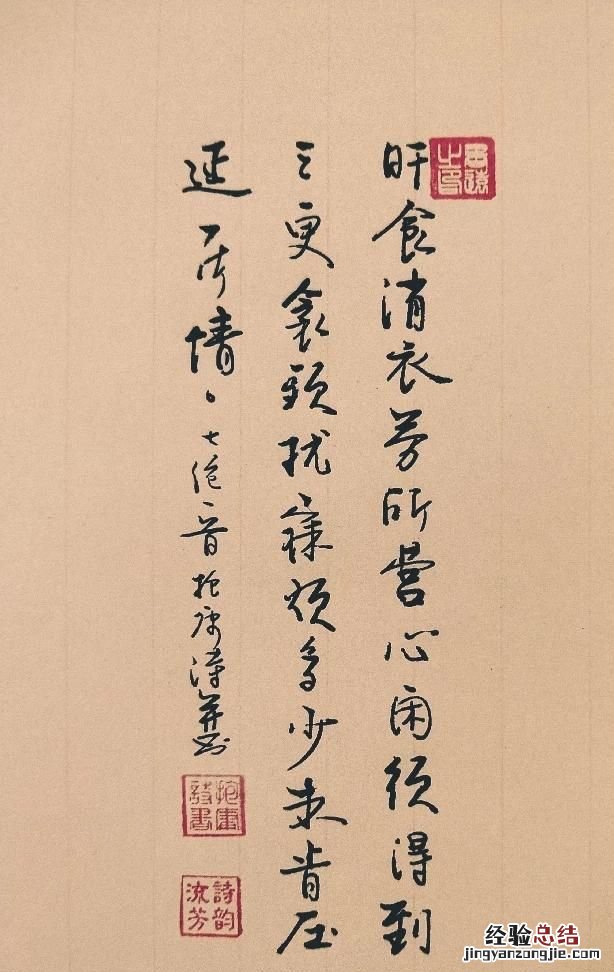 旰食消衣劳所营心闲须得到
三更衾頭扰寐烦多少未肯压
延一片情、七绝一首抱庸诗并书
詩韵流芳
经验总结
jingyanzongjie.com